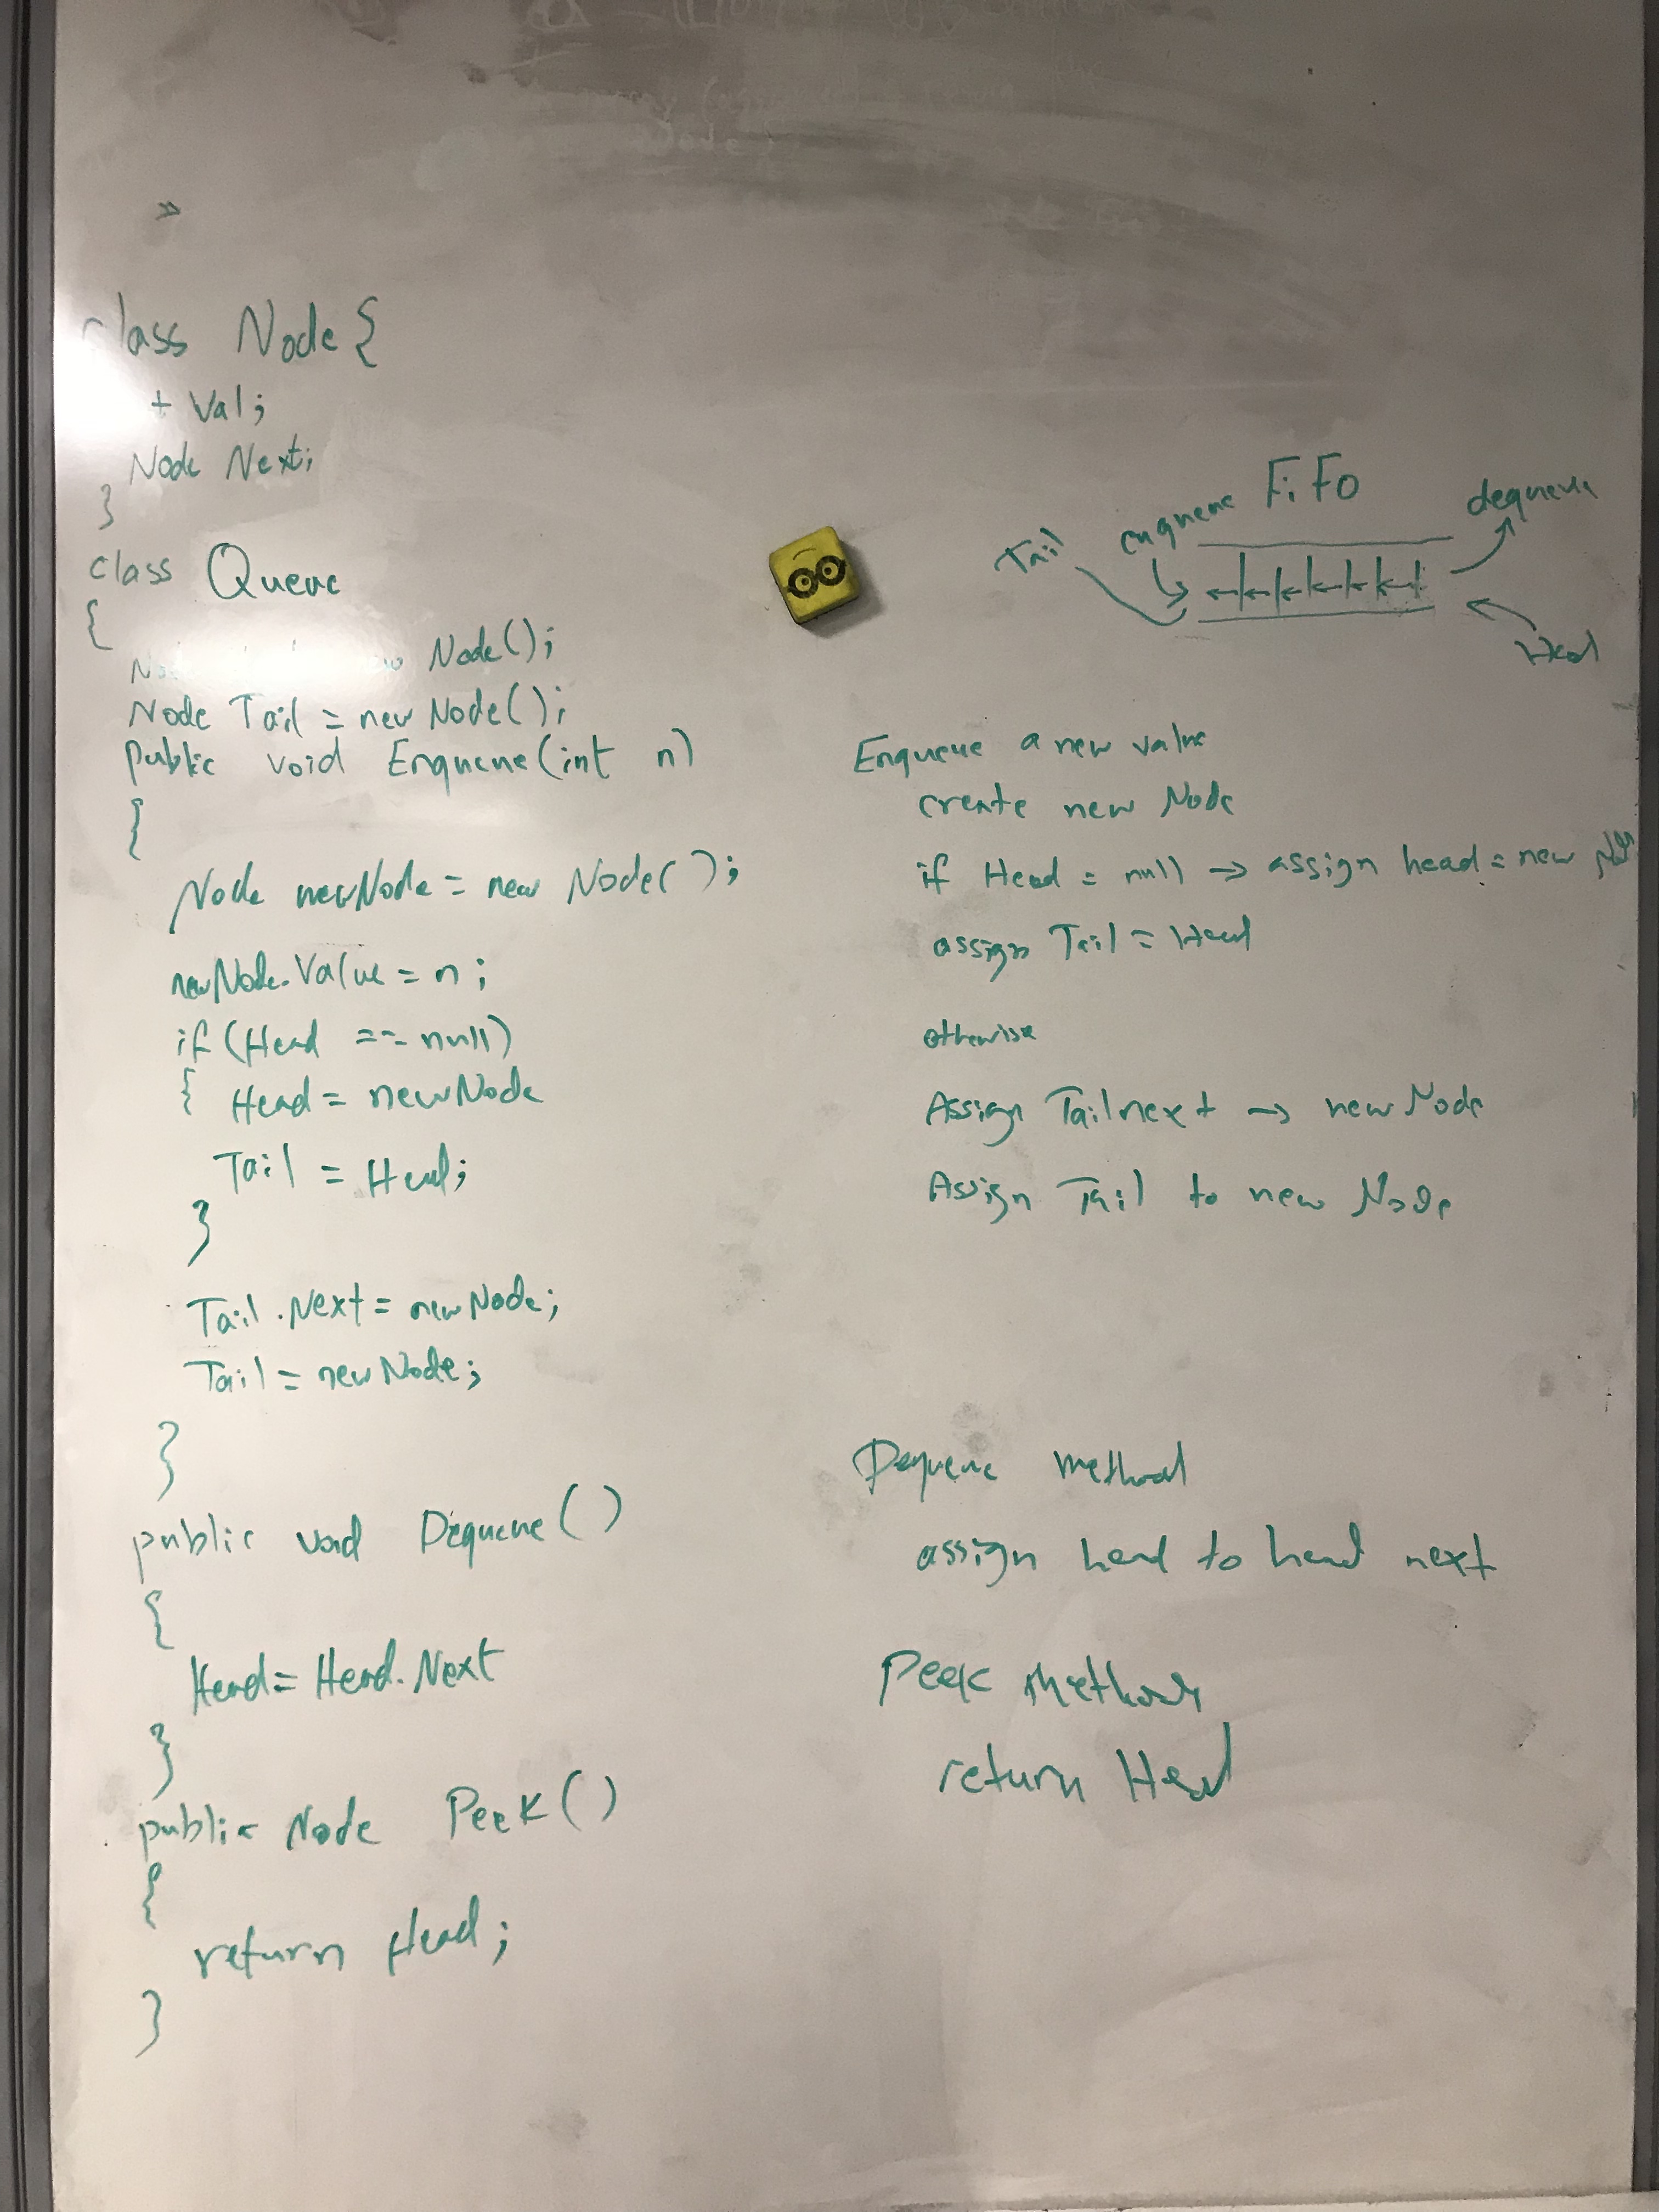 class Node {
+ Val;
Node Next;
}
class Queue
{
Node();
Node Tail = new Node();
public void Enqueue(int n)
{
Node newNode = new Node();
newNode.Value = n;
if (Head == null)
{ Head = newNode
Tail = Head;
}
Tail.Next = newNode;
Tail = newNode;
}
public void Dequeue()
{
Head = Head.Next
}
public Node Peek()
{
return Head;
}
FiFo
enqueue
dequeue
Tail
Head
Enqueue a new value
create new Node
if Head = null → assign head = new
assign Tail = Head
otherwise
Assign Tail next → new Node
Assign Tail to new Node
Dequeue method
assign head to head next
Peek Method
return Head